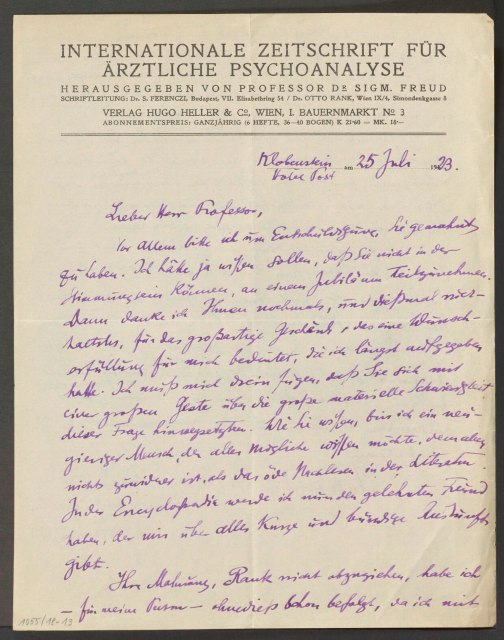 INTERNATIONALE ZEITSCHRIFT FÜR
ÄRZTLICHE PSYCHOANALYSE
HERAUSGEGEBEN VON PROFESSOR DR SIGM. FREUD
SCHRIFTLEITUNG: Dr. S. FERENCZI, Budapest, VII. Elisabethring 54 / Dr. OTTO RANK, Wien IX/4, Simondenkgasse 8
VERLAG HUGO HELLER & Co, WIEN, I. BAUERNMARKT No 3
ABONNEMENTSPREIS: GANZJÄHRIG (6 HEFTE, 36—40 BOGEN) K 21·60 = MK. 18·—
Klobenstein am 25 Juli 1923.
Hotel Post
Lieber Herr Professor,
Vor allem bitte ich um Entschuldigung, Sie gemahnt
zu haben. Ich hätte ja wissen sollen, daß Sie nicht in der
Stimmung sein können, an einem Jubiläum teilzunehmen.
Dann danke ich Ihnen nochmals, und diesmal rück-
haltslos, für das großartige Geschenk, das eine Wunsch-
erfüllung für mich bedeutet, die ich längst aufgegeben
hatte. Ich muß mich drein fügen, daß Sie sich mit
einer großen Geste über die große materielle Schwierigkeit
dieser Frage hinwegsetzten. Wie Sie wissen, bin ich ein neu-
gieriger Mensch, der alles Mögliche wissen möchte, dem aber
nichts zuwider ist, als das öde Nachlesen in der Literatur.
In der Encyclopädie werde ich nun den gelehrten Freund
haben, der mir über alles kurze und bündige Auskunft
gibt.
Ihre Mahnung, Rank nicht abzuziehen, habe ich
— für meine Person — ohnedieß schon befolgt, da ich mit
1055/18-13